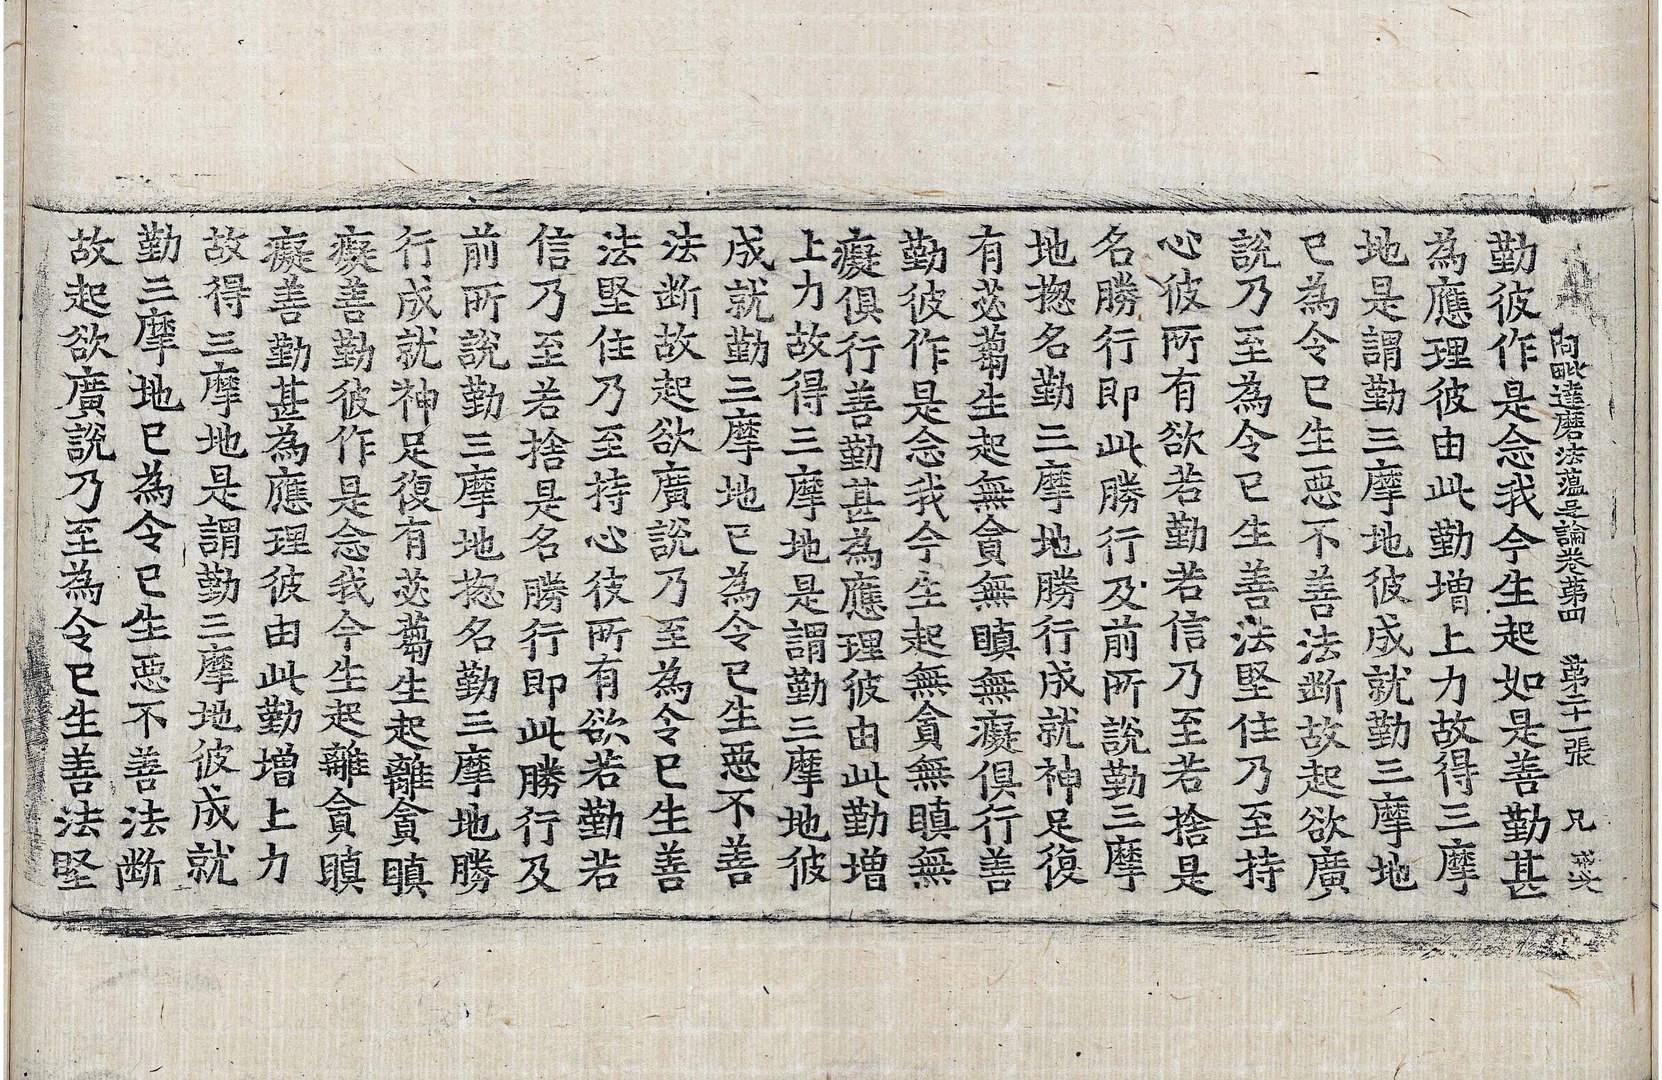 阿毗達磨法蘊足論卷第四　第二十一張　兄
勤彼作是念我今生起如是善勤甚
為應理彼由此勤增上力故得三摩
地是謂勤三摩地彼成就勤三摩地
已為令已生惡不善法斷故起欲廣
說乃至為令已生善法堅住乃至持
心彼所有欲若勤若信乃至若捨是
名勝行即此勝行及前所說勤三摩
地揔名勤三摩地勝行成就神足復
有苾蒭生起無貪無瞋無癡俱行善
勤彼作是念我今生起無貪無瞋無
癡俱行善勤甚為應理彼由此勤增
上力故得三摩地是謂勤三摩地彼
成就勤三摩地已為令已生惡不善
法斷故起欲廣說乃至為令已生善
法堅住乃至持心彼所有欲若勤若
信乃至若捨是名勝行即此勝行及
前所說勤三摩地揔名勤三摩地勝
行成就神足復有苾蒭生起離貪瞋
癡善勤彼作是念我今生起離貪瞋
癡善勤甚為應理彼由此勤增上力
故得三摩地是謂勤三摩地彼成就
勤三摩地已為令已生惡不善法斷
故起欲廣說乃至為令已生善法堅